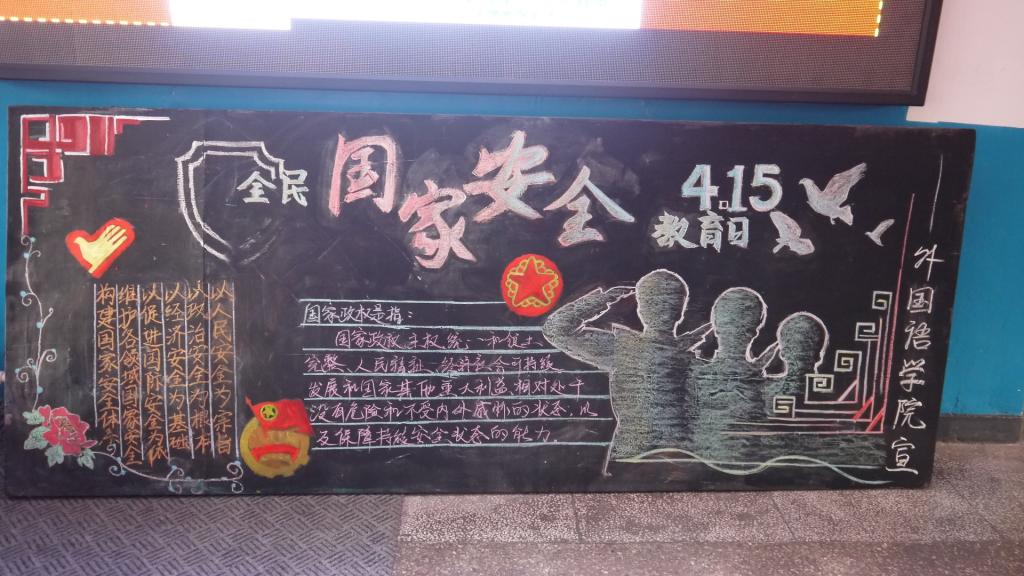 全民
国家安全
4.15
教育日
以人民安全为宗旨
以政治安全为根本
以经济安全为基础
以促进国际安全为依
维护各领域国家安全
构建国家安全体
国家政权是指：
国家政权、主权、统一和领土
完整、人民福祉、经济社会可持续
发展和国家其他重大利益相对处于
没有危险和不受内外威胁的状态，以
及保障持续安全状态的能力。
外国语学院宣